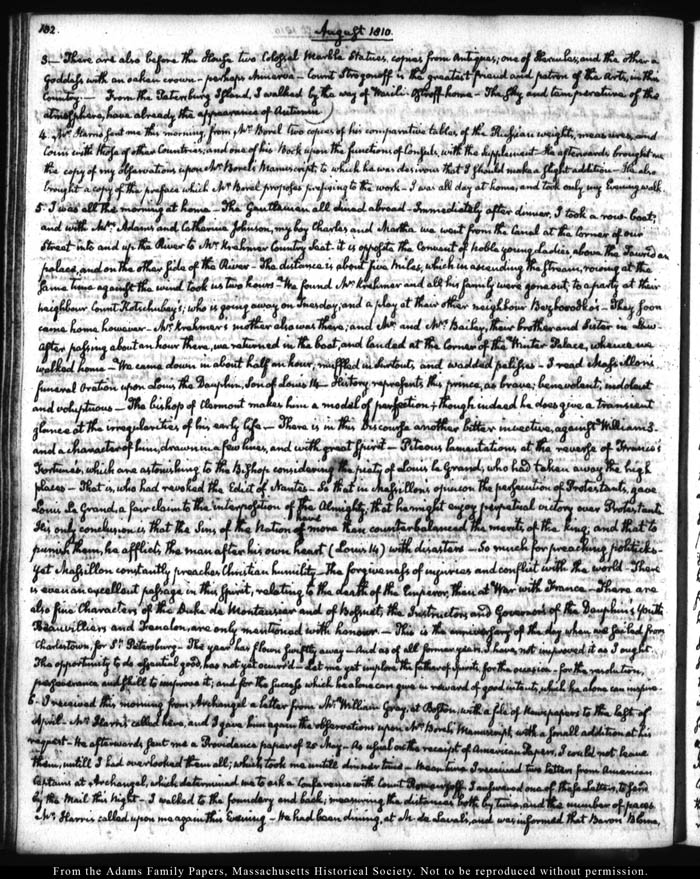 182.
August 1810.
3 — There are also before the House two Colossal Marble Statues, copies from Antiques; one of Hercules, and the other a
Goddess with an oaken crown — perhaps Minerva — Count Strogonoff is the greatest friend and patron of the Arts, in this
Country. — From the Petersburg Island, I walked by the way of Wasili-Ostroff home — The sky and temperature of the
atmosphere, have already the appearance of Autumn
4. Mr Harris sent me this morning, from Mr Borel two copies of his comparative tables of the Russian weights, measures, and
Coins with those of other Countries; and one of his Book upon the functions of Consuls, with the supplement. He afterwards brought me
the copy of my observations upon Mr Borel's Manuscript; to which he was desirous that I should make a slight addition — He also
brought a copy of the preface which Mr Borel proposes prefixing to the work — I was all day at home, and took only my Evening walk.
5. I was all the morning at home — The Gentlemen all dined abroad — Immediately after dinner, I took a row-boat;
and with Mrs Adams and Catherine Johnson, my boy Charles and Martha we went from the Canal at the Corner of our
Street into and up the River to Mr Krehmer Country Seat. it is opposite the Convent of Noble young Ladies above the Taurida
palace, and on the other side of the River — The distance is about five miles, which in ascending the stream, rowing at the
same time against the wind took us two hours — We found Mr Krehmer and all his family were gone out; to a party at their
neighbour Count Kotschubey's; who is going away on Tuesday; and a play at their other neighbour Bezborodko's — They soon
came home however — Mr Krehmer's mother also was there; and Mr and Mrs Bailey, their brother and Sister in Law —
After passing about an hour there, we returned in the boat, and landed at the Corner of the Winter Palace, whence we
walked home — We came down in about half an hour, muffled in surtouts and wadded pelisses — I read Massillon's
funeral Oration upon Louis the Dauphin, Son of Louis 14 — History represents this prince, as brave, benevolent, indolent
and voluptuous — The bishop of Clermont makes him a model of perfection; though indeed he does give a transient
glance at the irregularities of his early life — There is in this Discourse another bitter invective, against William 3.
and a character of him, drawn in a few lines, and with great spirit — Piteous lamentations at the reverse of France's
Fortunes, which are astonishing to the Bishop considering the piety of Louis le Grand, who had taken away the high
places — That is, who had revoked the Edict of Nantes — So that in Massillon's opinion the persecution of Protestants, gave
Louis Le Grand, a fair claim to the interposition of the Almighty, that he might enjoy perpetual victory over Protestants.
His only conclusion is that the Sins of the Nation have more than counterbalanced the merits of the king, and that to
punish them, he afflicts the man after his own heart (Louis 14) with disasters — So much for preaching politicks —
Yet Massillon constantly preaches Christian humility — The forgiveness of injuries and conflict with the world — There
is even an excellent passage in this spirit, relating to the death of the Emperor, then at War with France — There are
also fine Characters of the Duke de Montausier and of Bossuet, the Instructors and Governors of the Dauphin's Youth
Beauvilliers and Fenelon, are only mentioned with honour. — This is the anniversary of the day when we sailed from
Charlestown, for St. Petersburg — The year has flown swiftly away — And as of all former years, I have not improved it as I ought.
The opportunity to do essential good, has not yet occurr'd — Let me yet implore the father of spirits for the occasion — for the resolution,
perseverance and skill to improve it; and for the success which he alone can give in reward of good intents, which he alone can inspire.
6. I received this morning from Archangel a letter from Mr William Gray, at Boston, with a file of Newspapers to the last of
April — Mr Harris called here, and I gave him again the observations upon Mr Borel's Manuscript, with a small addition at his
request — He afterwards sent me a Providence paper of 20 May — As usual on the receipt of American Papers, I could not leave
them, untill I had overlooked them all; which took me untill dinner time — Mean time I received two letters from American
Captains at Archangel, which determined me to ask a Conference with Count Romanzoff. I answered one of these Letters, to send
by the Mail this Night — I walked to the foundery and back; measuring the distances both by time, and the number of paces
Mr Harris called upon me again this Evening — He had been dining, at M. de Laval's, and was informed that Baron Blome,
From the Adams Family Papers, Massachusetts Historical Society. Not to be reproduced without permission.